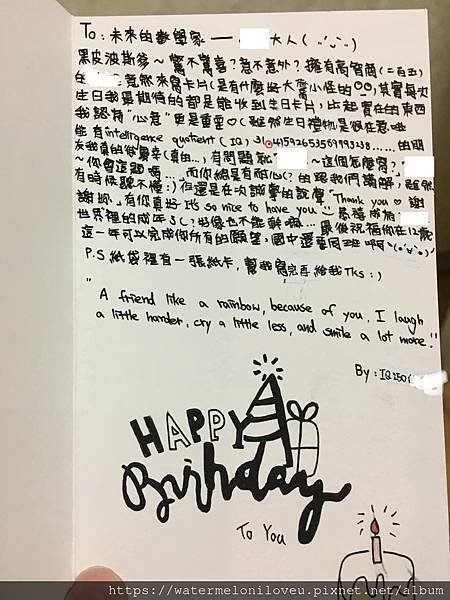 To: 未來的數學家 —— 大人( ¨ )
黑皮波斯爹～驚不驚喜? 意不意外? 擁有高智商(二百五)
的 竟然來寫卡片(是有什麼好大驚小怪的),其實每次
生日我最期待的都是能收到生日卡片,比起實在的東西
我認為"心意"更是重要♡(雖然生日禮物是很在意啦
能有intelligence quotient (IQ) 3.1415926535 的朋
友我真的很慶幸(真的…),有問題就" ～這個怎麼寫?"
～你會這題嗎…",而你總是有耐心的跟我們講解,雖然
有時候聽不懂:) 但還是在次誠摯的說聲"Thank you ♡ 謝
謝妳",有你真好 It's so nice to have you 恭禧成為
世界裡的成年人!好像也不能幹嘛… 最後祝福你在12歲
這一年可以完成你所有的願望,國中還要同班啊
P.S 紙袋裡有一張紙卡,幫我寫完再給我 Tks : )
"A friend like a rainbow, because of you, I laugh
a little harder, cry a little less, and smile a lot more."
By : IQ250
HAPPY
Birthday
To You
https://watermeloniloveu.pixnet.net/album